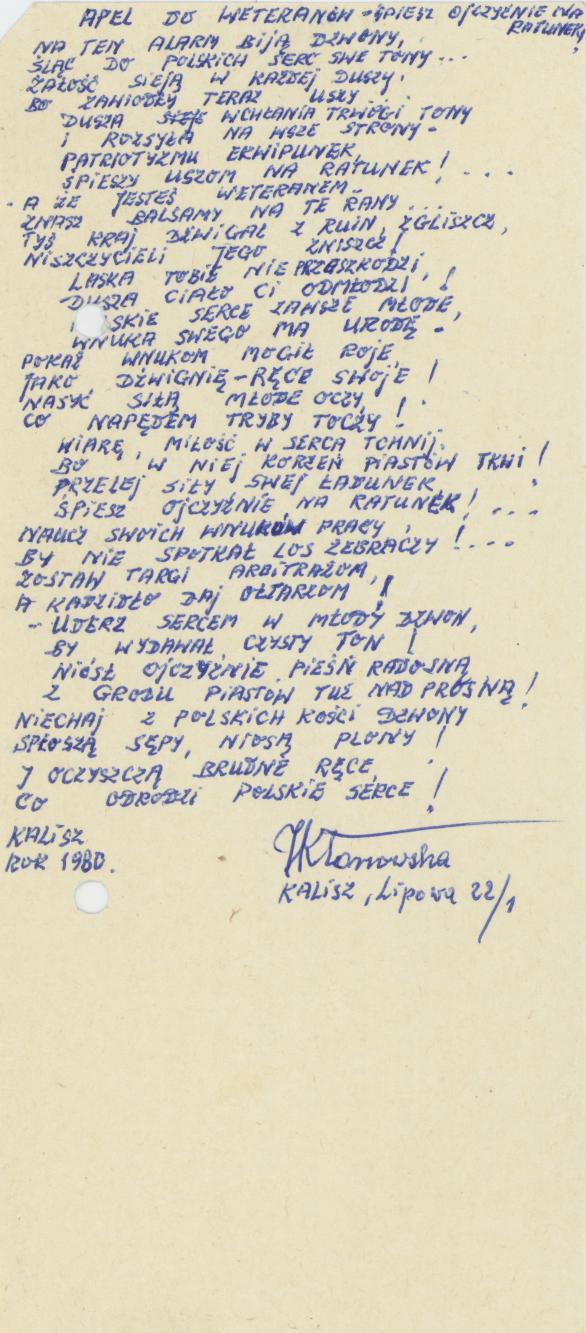 APEL DO WETERANÓW - ŚPIESZ OJCZYŹNIE NA
RATUNEK!
NA TEN ALARM BIJĄ DZWONY,
ŚLĄC DO POLSKICH SERC SWE TONY...
ŻAŁOŚĆ SIEJĄ W KAŻDEJ DUSZY.
BO ZAWIODŁY TERAZ USZY...
DUSZA WCHŁANIA TRWOGI TONY
I ROZSYŁA NA WSZE STRONY -
PATRIOTYZMU EKWIPUNEK,
ŚPIESZY USZOM NA RATUNEK! ....
- A ŻE JESTEŚ WETERANEM -
ZNASZ BALSAMY NA TE RANY...
TYŚ KRAJ DŹWIGAŁ Z RUIN, ZGLISZCZ,
NISZCZYCIELI JEGO ZNISZCZ!
LASKA TOBIE NIE PRZESZKODZI,
DUSZA CIAŁO CI ODMŁODZI!
SKIE SERCE ZAWSZE MŁODE,
WNUKA SWEGO MA URODĘ -
POKAŻ WNUKOM MOGIŁ ROJE,
JAKO DŹWIGNIĘ - RĘCE SWOJE!
NASYĆ SIŁĄ MŁODE OCZY,
CO NAPĘDEM TRYBY TOCZY!
WIARĘ, MIŁOŚĆ W SERCA TCHNIJ.
BO W NIEJ KORZEŃ PIASTÓW TKWI!
PRZELEJ SIŁY SWEJ ŁADUNEK,
ŚPIESZ OJCZYŹNIE NA RATUNEK! ....
NAUCZ SWOICH WNUKÓW PRACY,
BY NIE SPOTKAŁ LOS ŻEBRACZY!....
ZOSTAW TARGI ARBITRAŻOM,
A KADZIDŁO DAJ OŁTARZOM!
- UDERZ SERCEM W MŁODY DZWON,
BY WYDAWAŁ CZYSTY TON!
NIÓSŁ OJCZYŹNIE PIEŚŃ RADOSNĄ
Z GRODU PIASTÓW TUŻ NAD PROSNĄ!
NIECHAJ Z POLSKICH KOŚCI DZWONY
SPŁOSZĄ SĘPY, NIOSĄ PLONY!
I OCZYSZCZĄ BRUDNE RĘCE,
CO ODRODZI POLSKIE SERCE!
KALISZ
ROK 1980.
Kłanowska
KALISZ, Lipowa 22/1